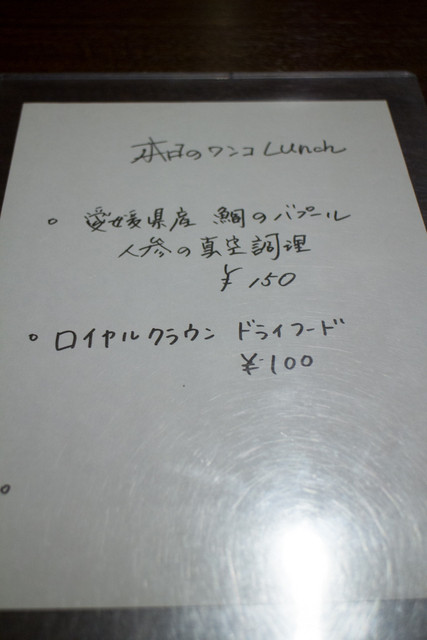 本日のワンコ Lunch
。愛媛県産 鯛のバプール
人参の真空調理
¥150
。ロイヤルクラウン ドライフード
¥100
。